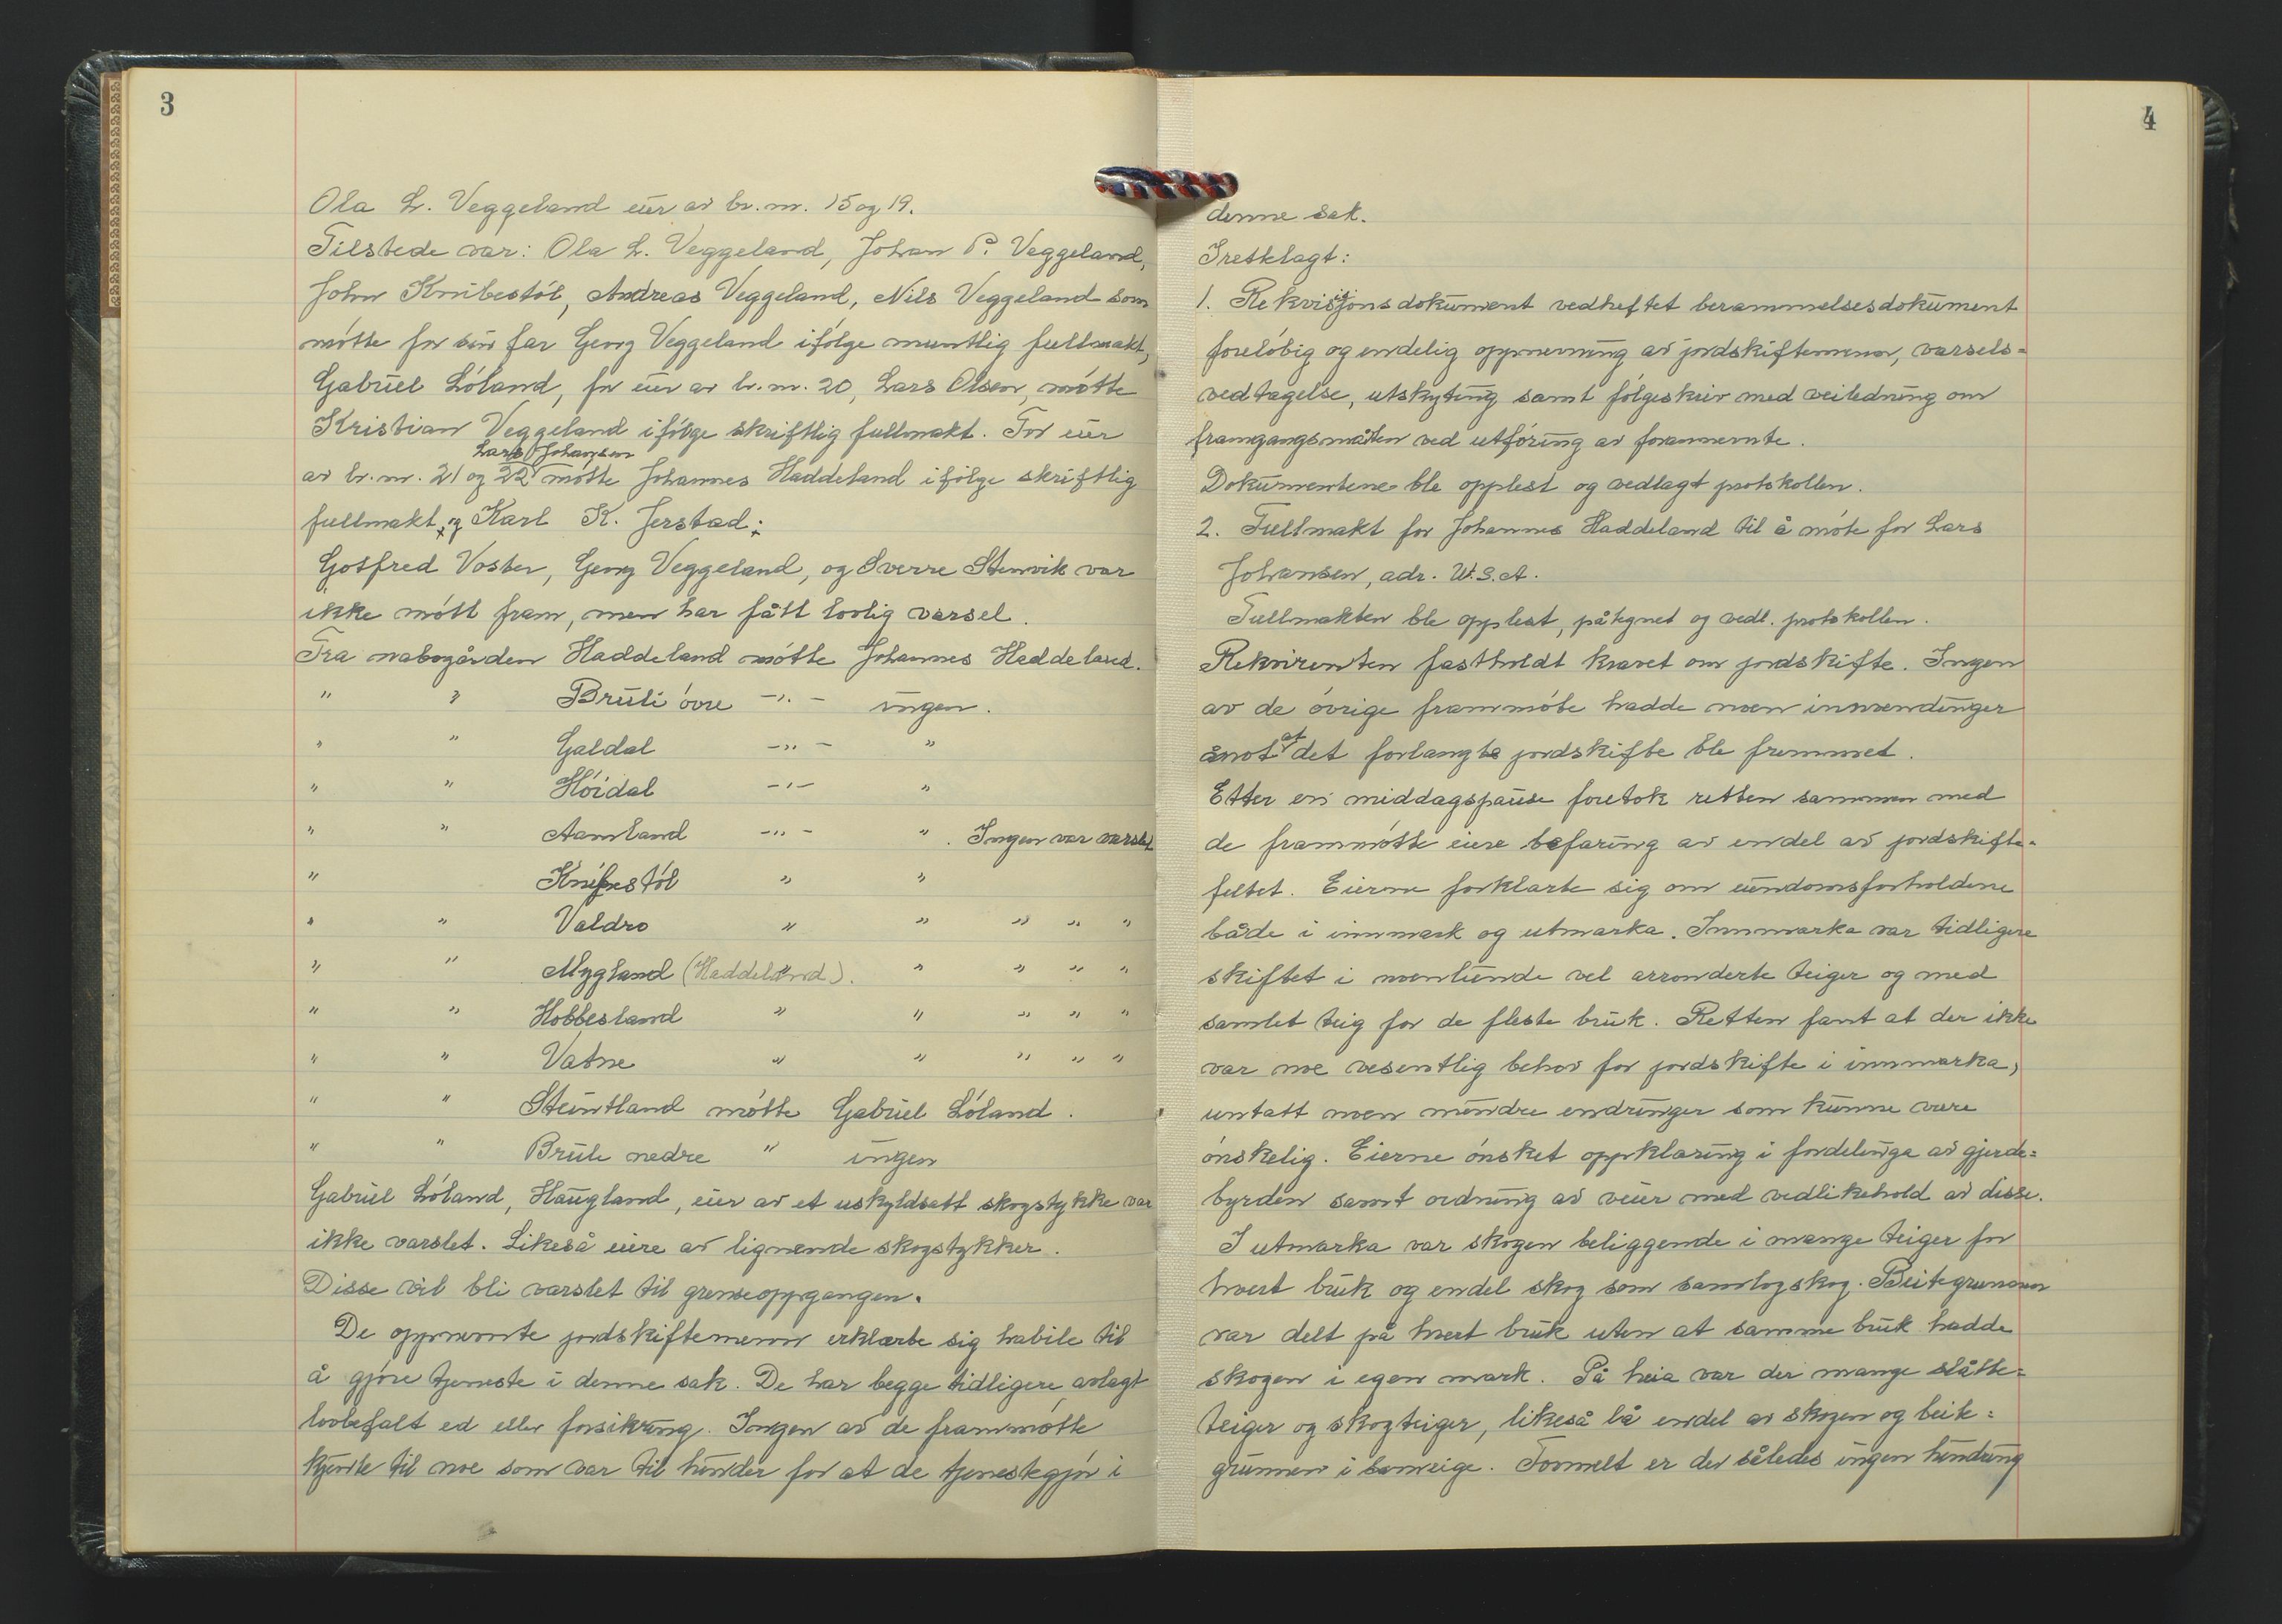 3
Ola L. Veggeland eier av br.nr. 15 og 19.
Tilstede var: Ola L. Veggeland, Johan P. Veggeland,
John Knibestøl, Andreas Veggeland, Nils Veggeland som
møtte for sin far Georg Veggeland ifølge muntlig fullmakt,
Gabriel Løland, for eier av br.nr. 20, Lars Olsen, møtte
Kristian Veggeland ifølge skriftlig fullmakt. For eier
Lars Johansen
av br.nr. 21 og 22 møtte Johannes Haddeland ifølge skriftlig
fullmakt, og Karl K. Jerstad.
Gotfred Voster, Georg Veggeland, og Sverre Stenvik var
ikke møtt fram, men har fått lovlig varsel.
Fra nabogården Haddeland møtte Johannes Haddeland.
" " Bruli øvre -"- ingen.
" " Galdal -"- "
" " Høidal -"- "
" " Aamland -"- " . Ingen var varslet
" Knibestøl " "
" " Valdro " " " " "
" " Mygland (Haddeland). " " " " "
" " Hobbesland " " " " "
" " Vatne " " " " "
" " Steintland møtte Gabriel Løland.
" " Brule nedre " ingen
Gabriel Løland, Haugland, eier av et uskyldsatt skogstykke var
ikke varslet. Likeså eiere av lignende skogstykker.
Disse vil bli varslet til grenseoppgangen.
De oppnevnte jordskiftemenn erklærte sig habile til
å gjøre tjeneste i denne sak. De har begge tidligere avlagt
lovbefalt ed eller forsikring. Ingen av de frammøtte
kjente til noe som var til hinder for at de tjenestegjør i
4
denne sak.
Iretklagt:
1. Rekvisisjonsdokument vedheftet berammelsesdokument
foreløbig og endelig oppnevning av jordskiftemenn, varsels-
vedtagelse, utskyting samt følgeskriv med veiledning om
framgangsmåten ved utføring av forannevnte.
Dokumentene ble opplest og vedlagt protokollen.
2. Fullmakt for Johannes Haddeland til å møte for Lars
Johansen, adr. U.S.A.
Fullmakten ble opplest, påtegnet og vedl. protokollen.
Rekvirenten fastholdt kravet om jordskifte. Ingen
av de øvrige frammøte hadde noen innvendinger
imot at det forlangte jordskifte ble fremmet.
Etter en middagspause foretok retten sammen med
de frammøtte eiere befaring av endel av jordskifte-
feltet. Eierne forklarte sig om eiendomsforholdene
både i innmark og utmarka. Innmarka var tidligere
skiftet i noenlunde vel arronderte teiger og med
samlet teig for de fleste bruk. Retten fant at der ikke
var noe vesentlig behov for jordskifte i innmarka,
untatt noen mindre endringer som kunne være
ønskelig. Eierne ønsket oppklaring i fordelinga av gjerde-
byrden samt ordning av veier med vedlikehold av disse.
I utmarka var skogen beliggende i mange teiger for
hvert bruk og endel skog som samlogskog. Beitegrunnen
var delt på hvert bruk uten at samme bruk hadde
skogen i egen mark. På heia var der mange slåtte-
teiger og skogteiger, likeså lå endel av skogen og beite-
grunnen i sameige. Formelt er der således ingen hindring